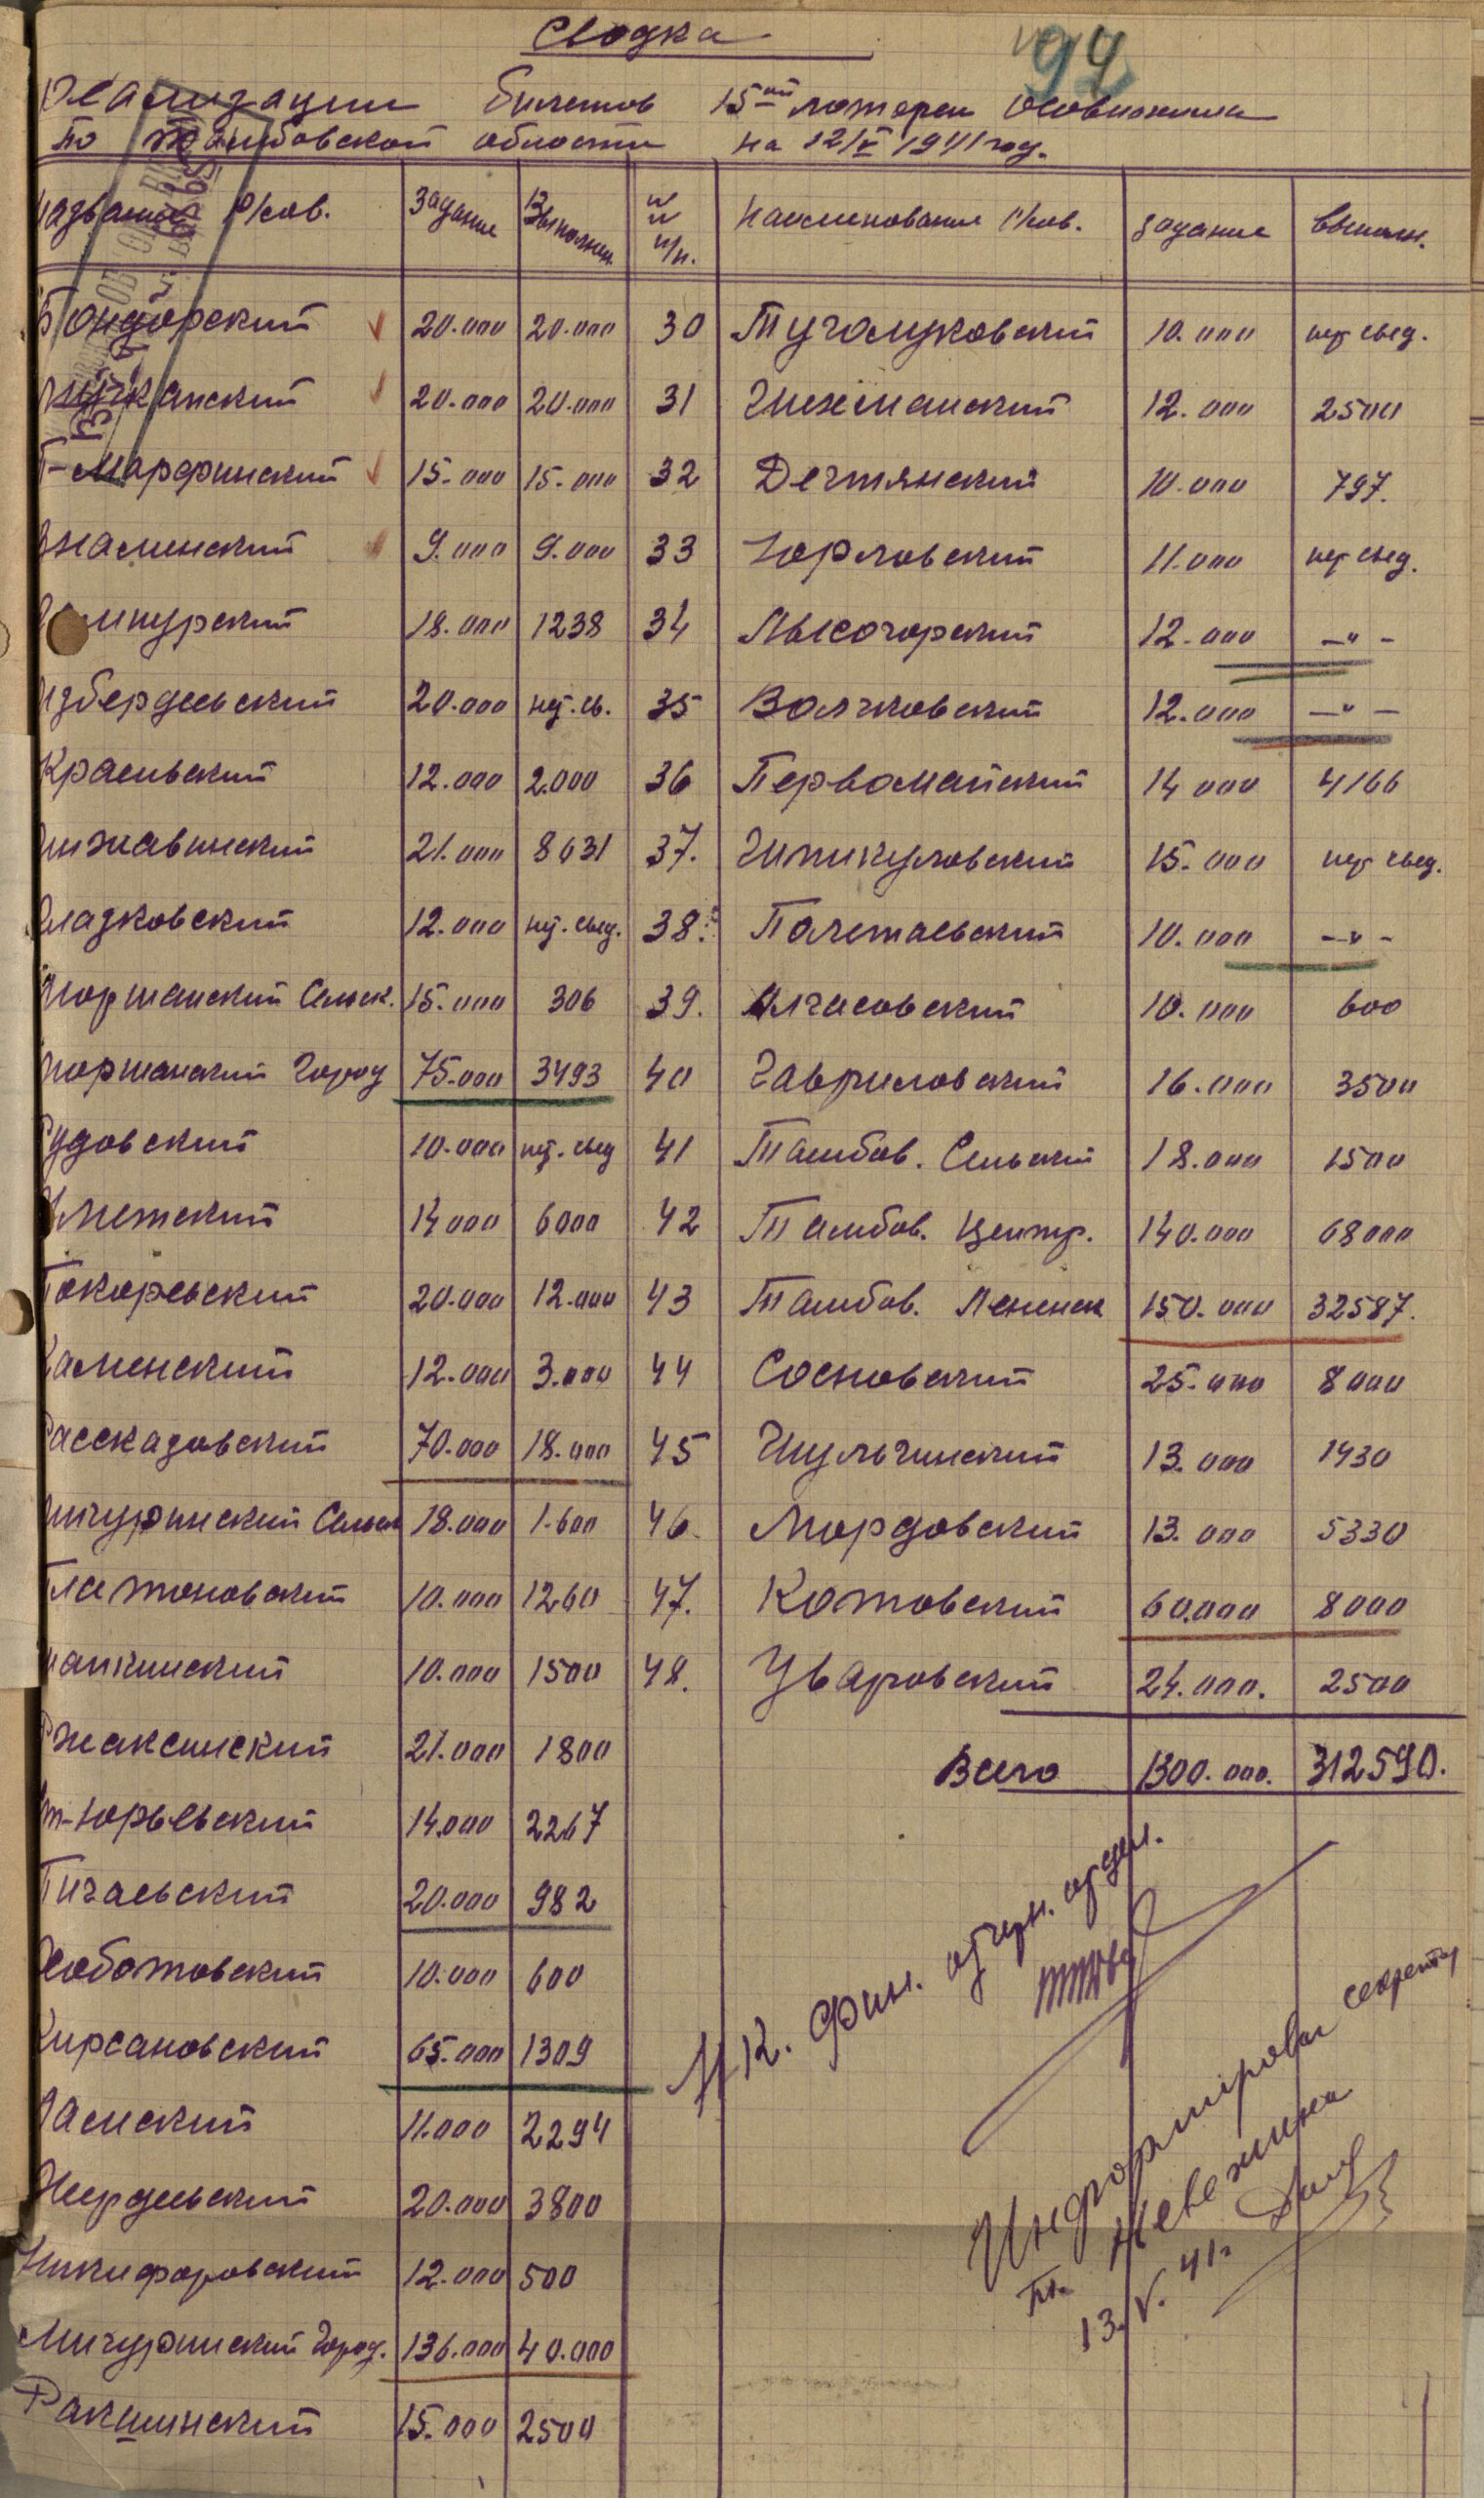 Сводка
94
Реализации билетов 15ой лотереи Осовиахима
по Тамбовской области на 12/V 1941 год.
Название р/сов. Задание Выполнен.
Бондарский 20.000 20.000
20.000 20.000
П-Марфинский 15.000 15.000
Знаменский 9.000 9.000
Лампурский 18.000 1238
Избердеевский 20.000 нет св.
Красивский 12.000 2.000
Инжавинский 21.000 8031
Гладковский 12.000 нет свед.
Моршанский Сельск. 15.000 306
Моршанский Город 75.000 3493
Рудовский 10.000 нет свед
Уметский 14000 6000
Токаревский 20.000 12.000
Каменский 12.000 3.000
Рассказовский 70.000 18.000
Мичуринский Сельск 18.000 1.600
Платоновский 10.000 1260
Шапкинский 10.000 1500
Ржаксинский 21.000 1800
т-Юрьевский 14.000 2267
Пичаевский 20.000 982
Хоботовский 10.000 600
Кирсановский 65.000 1309
Ламский 11.000 2294
Жердевский 20.000 3800
Никифоровский 12.000 500
Мичуринский Город. 136.000 40.000
Ракшинский 15.000 2500
№№ п/п. Наименование р/сов. Задание Выполн.
30 Туголуковский 10.000 нет свед.
31 Шехманский 12.000 2500
32 Дегтянский 10.000 797.
33 Юрловский 11.000 нет свед.
34 Лысогорский 12.000 -"-
35 Волчковский 12.000 -"-
36 Первомайский 14000 4166
37. Шпикуловский 15.000 нет свед.
38. Полетаевский 10.000 -"-
39. Алгасовский 10.000 600
40 Гавриловский 16.000 3500
41 Тамбов. Сельский 18.000 1500
42 Тамбов. Центр. 140.000 68000
43 Тамбов. Ленинск 150.000 32587.
44 Сосновский 25.000 8000
45 Шульгинский 13.000 1430
46. Мордовский 13.000 5330
47. Котовский 60.000 8000
48. Уваровский 24.000. 2500
Всего 1300.000. 312590.
Информирован секретарь
тов. Невежина
13.V.41г